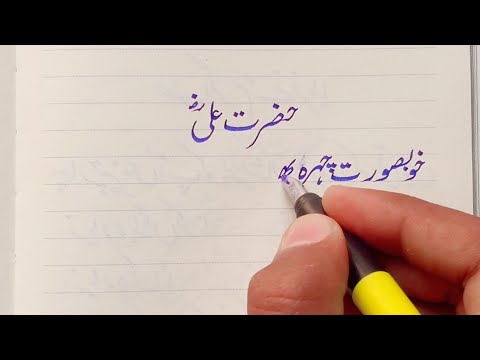 حضرت علیؓ
خوبصورت چہرہ